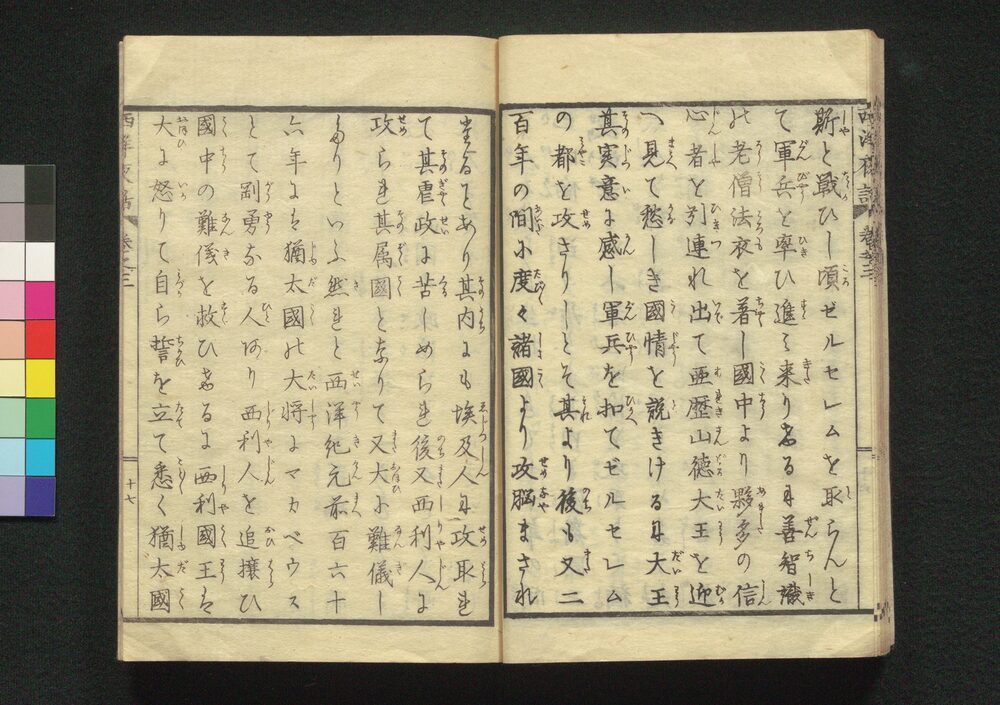 西洋夜話 巻之三
斯と戰ひし頃ゼルセレムを取らんと
て軍兵を率ひ進み来りけるに善智識
の老僧法衣を着し國中より夥多の信
心者を引連れ出て亜歴山徳大王を迎
へ見て愁しき國情を説きけるに大王
其実意に感し軍兵を扣てゼルセレム
の都を攻さりしとそ其より後も又二
百年の間に度々諸國より攻脳まされ
堂ることあり其内にも埃及人に攻取れ
て其虐政に苦しめられ後又西利人に
攻られ其属國となりて又大に難儀し
たりといふ然れと西洋紀元前百六十
六年には猶太國の大将にマカベウス
とて剛勇なる人あり西利人を追攘ひ
國中の難儀を救ひけるに西利國王は
大に怒りて自ら誓を立て悉く猶太國
西洋夜話 巻之三
十七